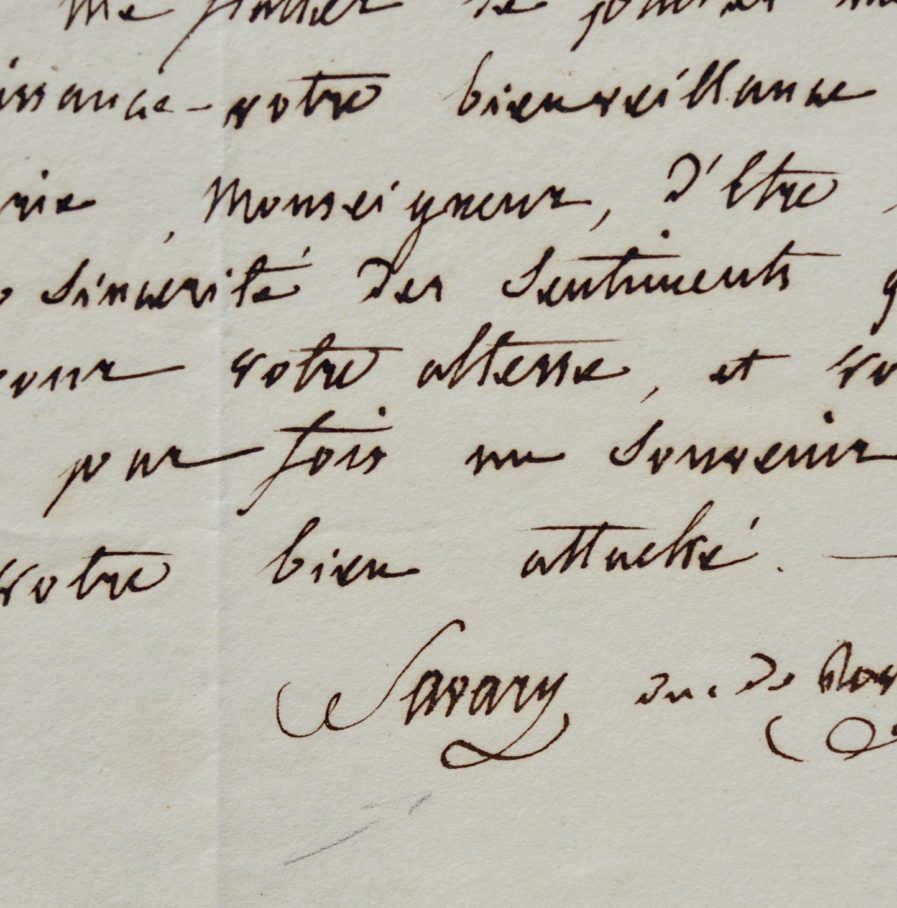 me flatter de
votre bienveillance
Monseigneur, d'Etre
sincerité des Sentiments
pour votre altesse, et
par fois un Souvenir
votre bien attaché. —
Savary duc de Rov